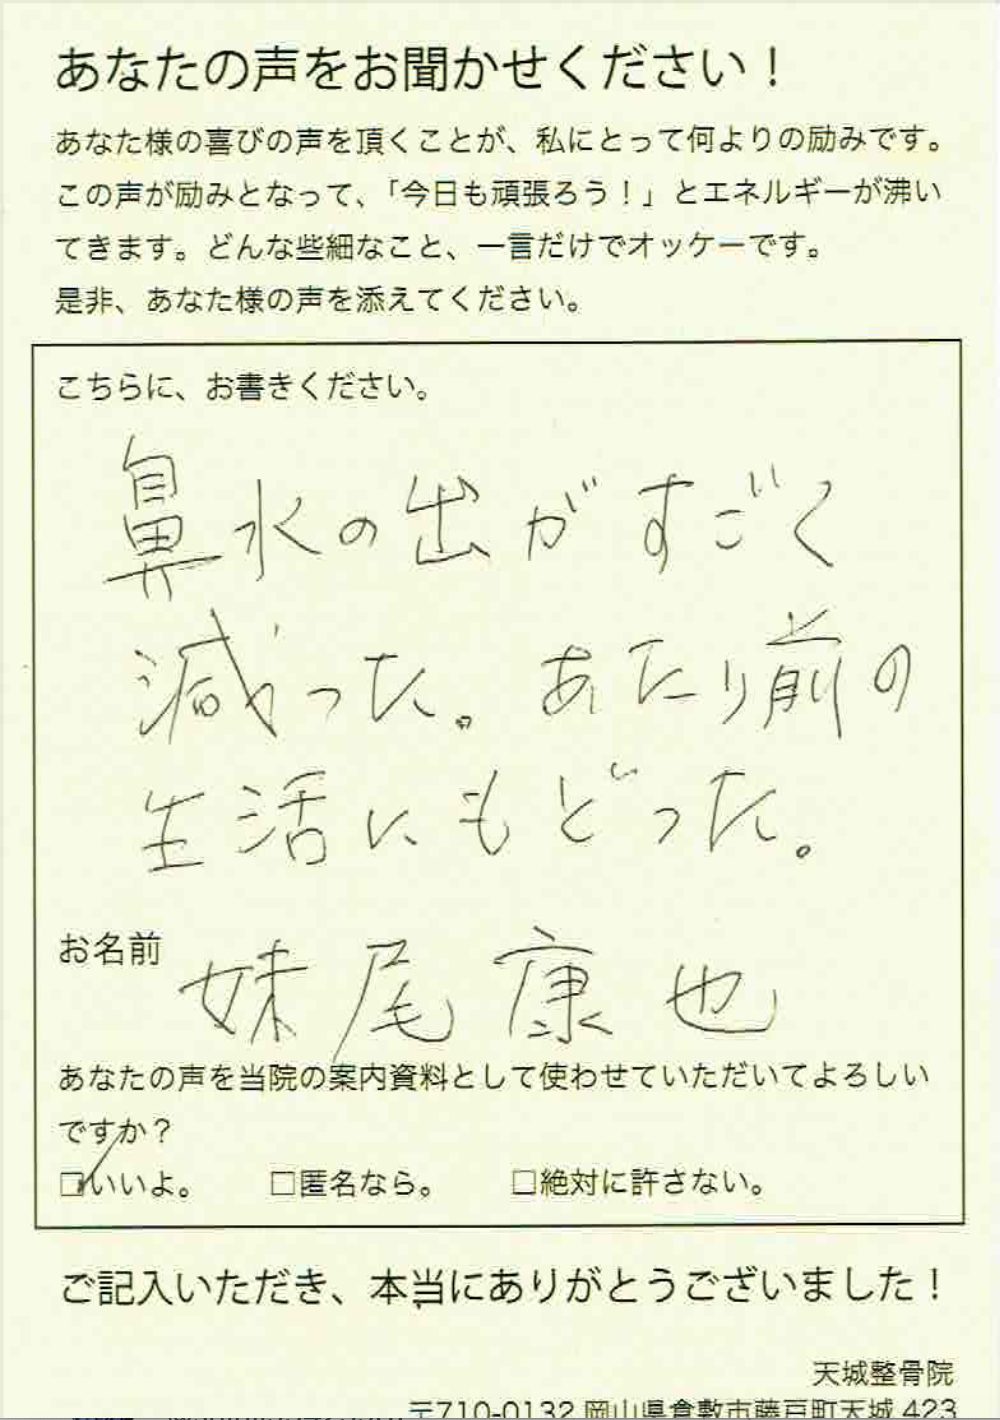 あなたの声をお聞かせください！
あなた様の喜びの声を頂くことが、私にとって何よりの励みです。
この声が励みとなって、「今日も頑張ろう！」とエネルギーが沸い
てきます。どんな些細なこと、一言だけでオッケーです。
是非、あなた様の声を添えてください。
こちらに、お書きください。
鼻水の出がすごく
減った。あたり前の
生活にもどった。
お名前 妹尾康也
あなたの声を当院の案内資料として使わせていただいてよろしい
ですか？
□いいよ。 □匿名なら。 □絶対に許さない。
ご記入いただき、本当にありがとうございました！
天城整骨院
〒710-0132 岡山県倉敷市藤戸町天城 423